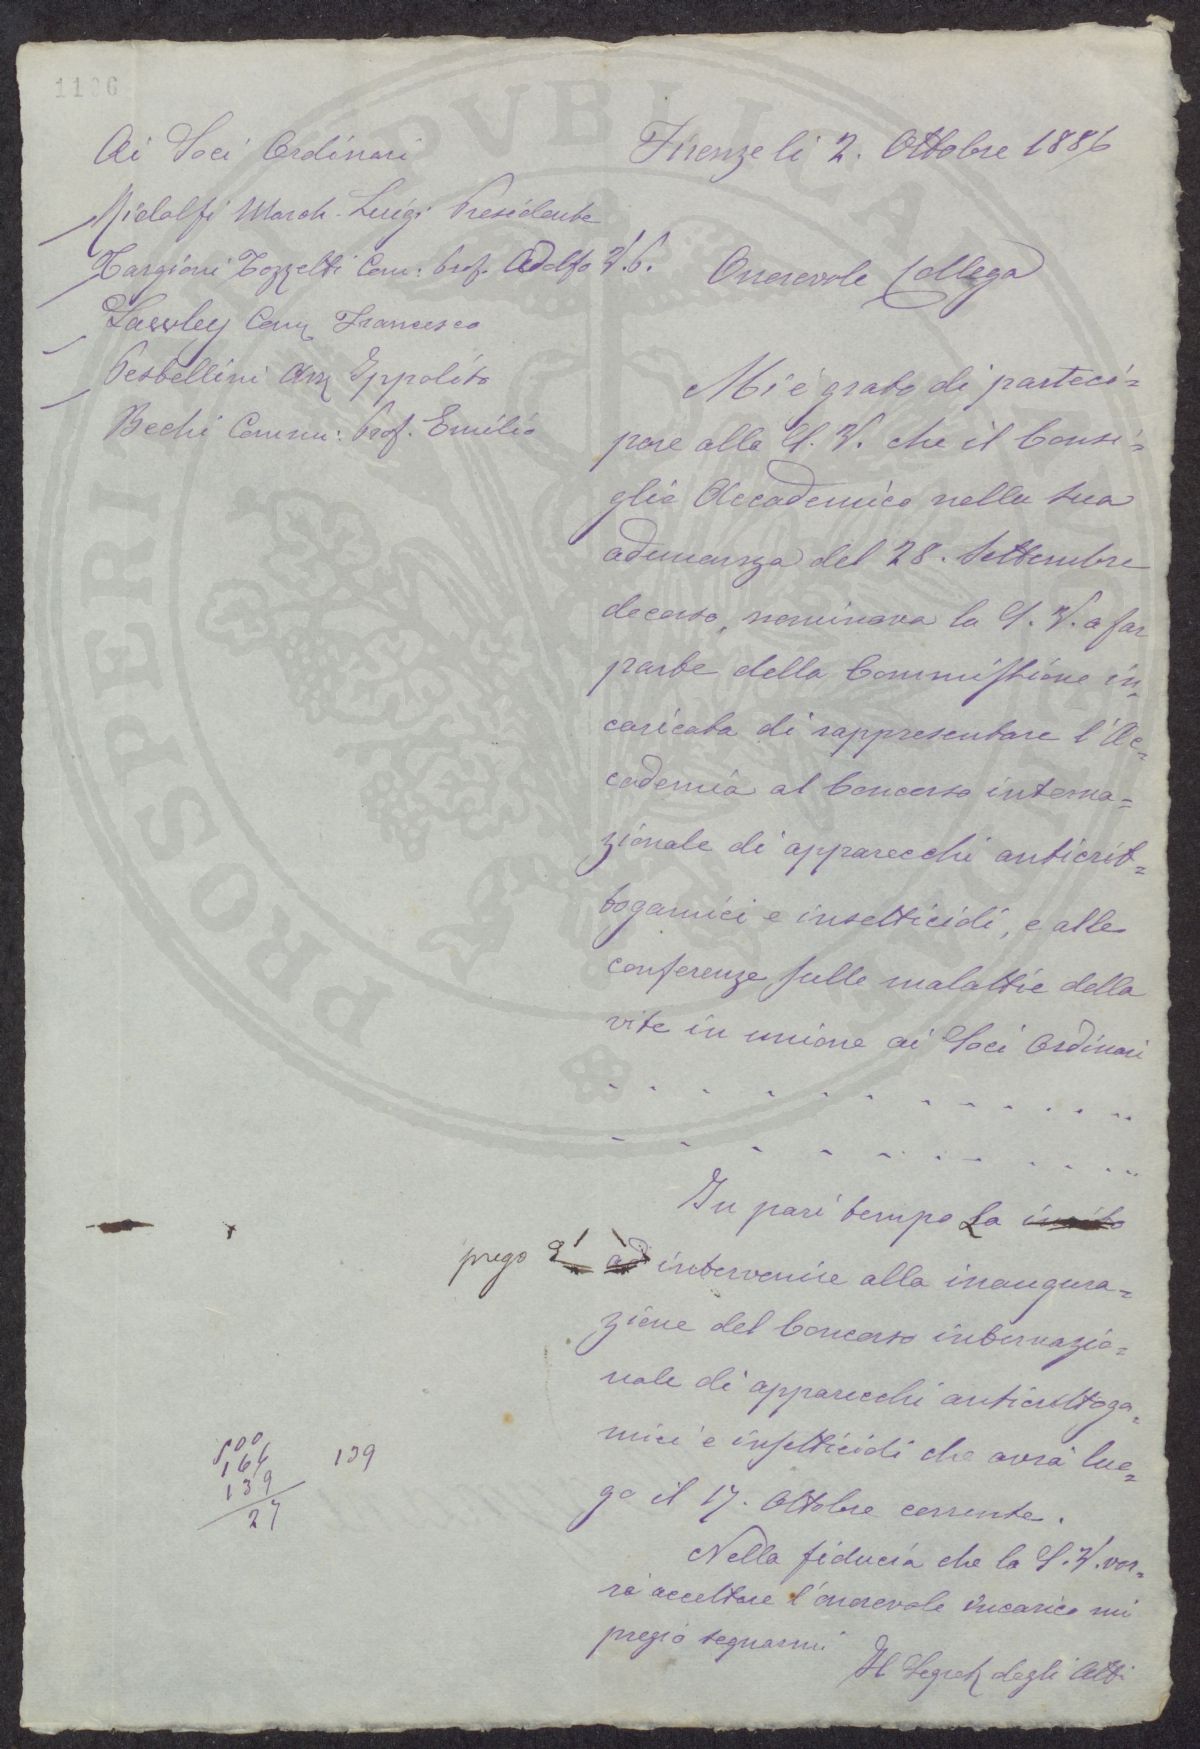 1106
Ai Soci Ordinari
Ridolfi March. Luigi Presidente
Targioni Tozzetti Com: Prof. Adolfo V. P.
Lawley Com Francesco
Pestellini Ippolito
Bechi Comm: Prof. Emilio
Firenze li 2. Ottobre 1886
Onorevole Collega
Mi è grato di parteci=
pare alla S. V. che il Consi=
glio Accademico nella sua
adunanza del 28. Settembre
decorso, nominava la S. V. a far
parte della Commissione in=
caricata di rappresentare l'Ac=
cademia al Concorso interna=
zionale di apparecchi anticrit=
togamici e insetticidi, e alle
conferenze sulle malattie della
vite in unione ai Soci Ordinari
In pari tempo La invito
prego di ad intervenire alla inaugura=
zione del Concorso internazio=
nale di apparecchi anticrittoga=
mici e insetticidi che avrà luo=
go il 17. Ottobre corrente.
Nella fiducia che la S. V. vor=
rà accettare l'onorevole incarico mi
pregio segnarmi
Il Segret degli Atti
164
139
27
139
PROSPERI PUBLICA